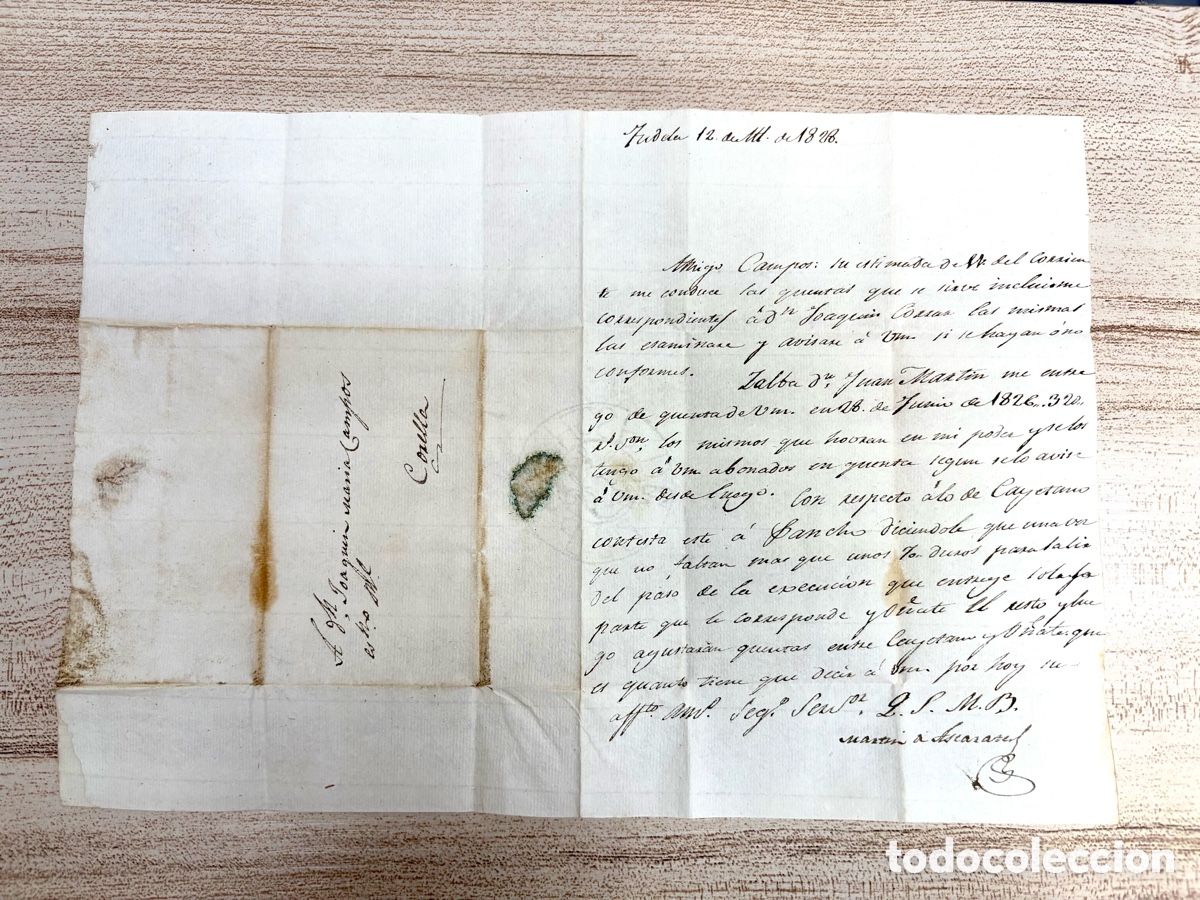 Tudela 12. de M. de 1828.
Amigo Campos: su estimada de del Corrien
te me conduce las quentas que se sirve incluirme
correspondientes á dn Joaquin las mismas
las examinare y avisare á Vm. si se hayan ó no
conformes. dn. Juan Martin me entre
go de quenta de Vm. en 28. de Junio de 1826. 320.
rs. von. los mismos que en mi poder y se los
tengo á Vm abonados en quenta segun se lo avise
á Vm. desde luego. Con respecto á lo de Cayetano
contesta este á Sancho diciendole que una vez
que no faltan mas que unos 70. duros para salir
del paso de la execucion que entregue solo la
parte que le corresponde y Oñate el resto y lue
go ajustarán quentas entre Cayetano y Oñate: que
es quanto tiene que decir á Vm. por hoy su
affto. amo. Sego. Servor. Q. S. M. B.
Martin
A Dn Joaquin Maria Campos
Corella
todocoleccion